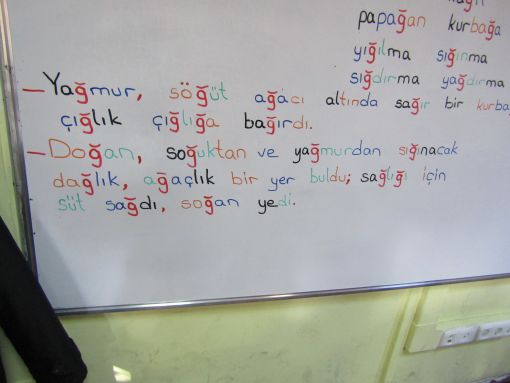 papağan kurbağa
yığılma sığınma
sığdırma yağdırma
– Yağmur, söğüt ağacı altında sağır bir
çığlık çığlığa bağırdı.
– Doğan, soğuktan ve yağmurdan sığınacak
dağlık, ağaçlık bir yer buldu; sağlığı için
süt sağdı, soğan yedi.